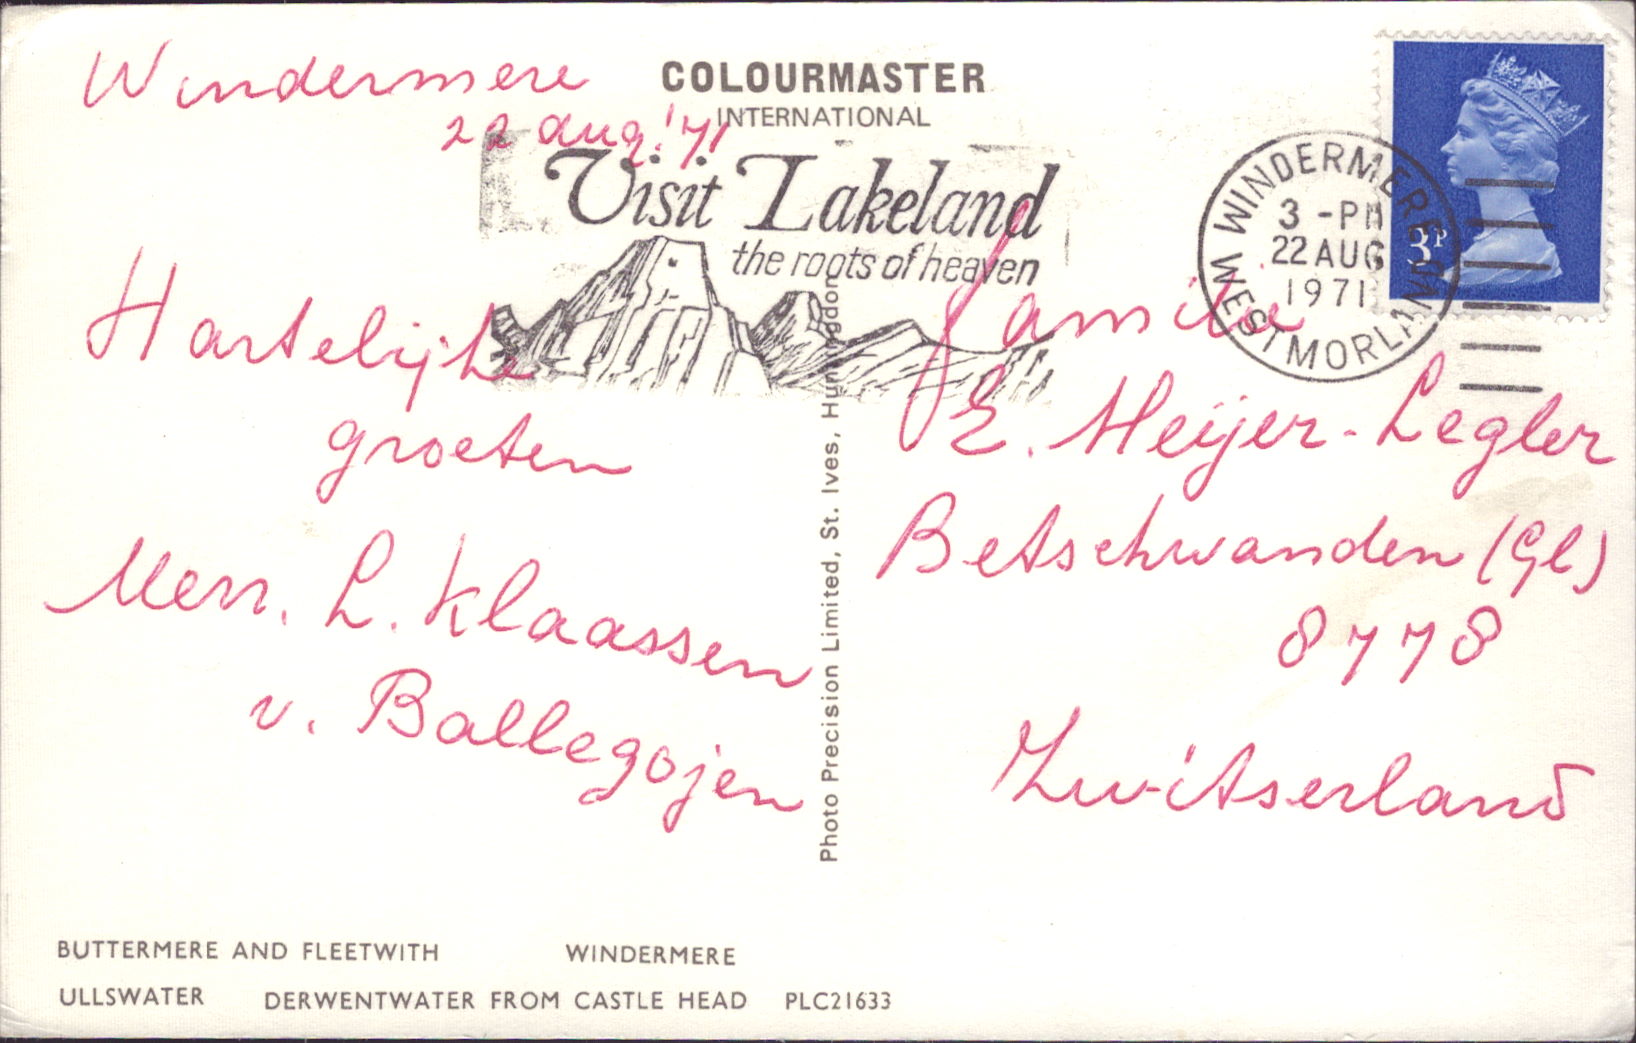 Windermere
22 aug. '71
COLOURMASTER
INTERNATIONAL
Visit Lakeland
the roots of heaven
WINDERMERE
WESTMORLAND
3 -PM
22 AUG
1971
3P
Hartelijke
groeten
Mevr. L. Klaassen
v. Ballegojen
Photo Precision Limited, St. Ives, Huntingdon
familie
E. Meijer-Legler
Betschwanden (Gl)
8778
Zwitserland
BUTTERMERE AND FLEETWITH WINDERMERE
ULLSWATER DERWENTWATER FROM CASTLE HEAD PLC21633